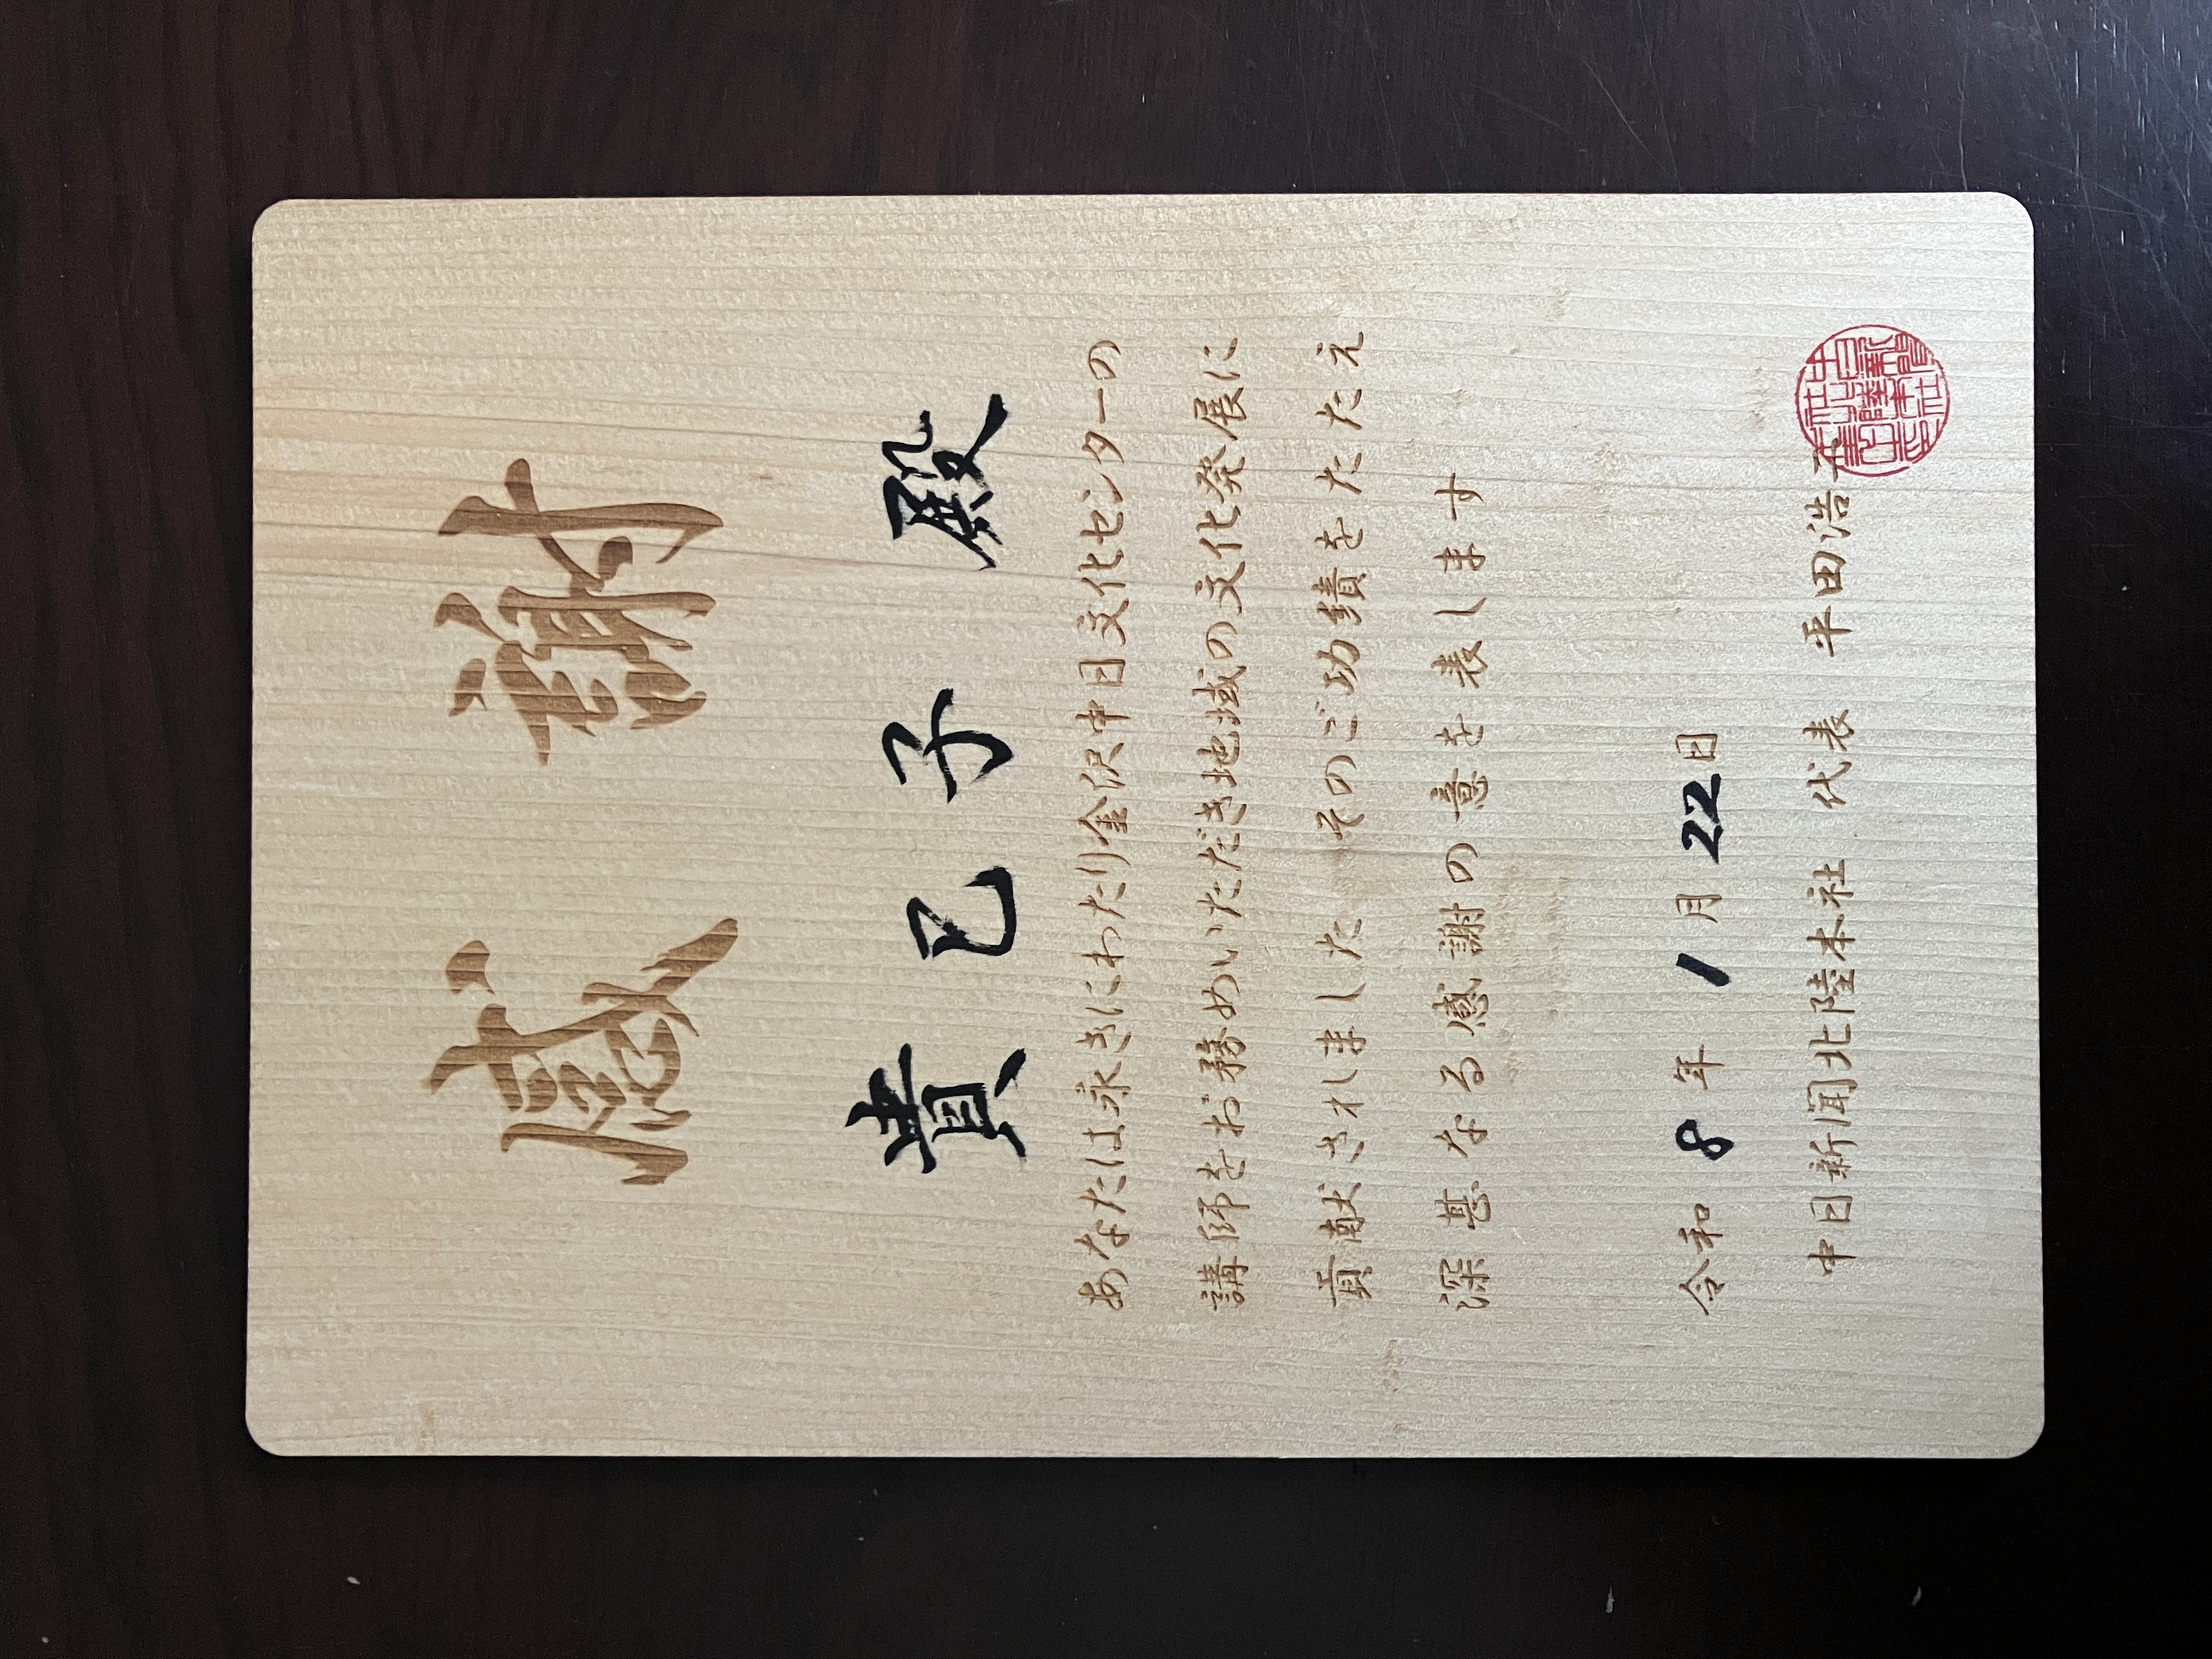 感謝
貴己子 殿
あなたは永きにわたり金沢中日文化センターの
講師をお務めいただき地域の文化発展に
貢献されました そのご功績をたたえ
深甚なる感謝の意を表します
令和8年1月22日
中日新聞北陸本社 代表 平田浩二